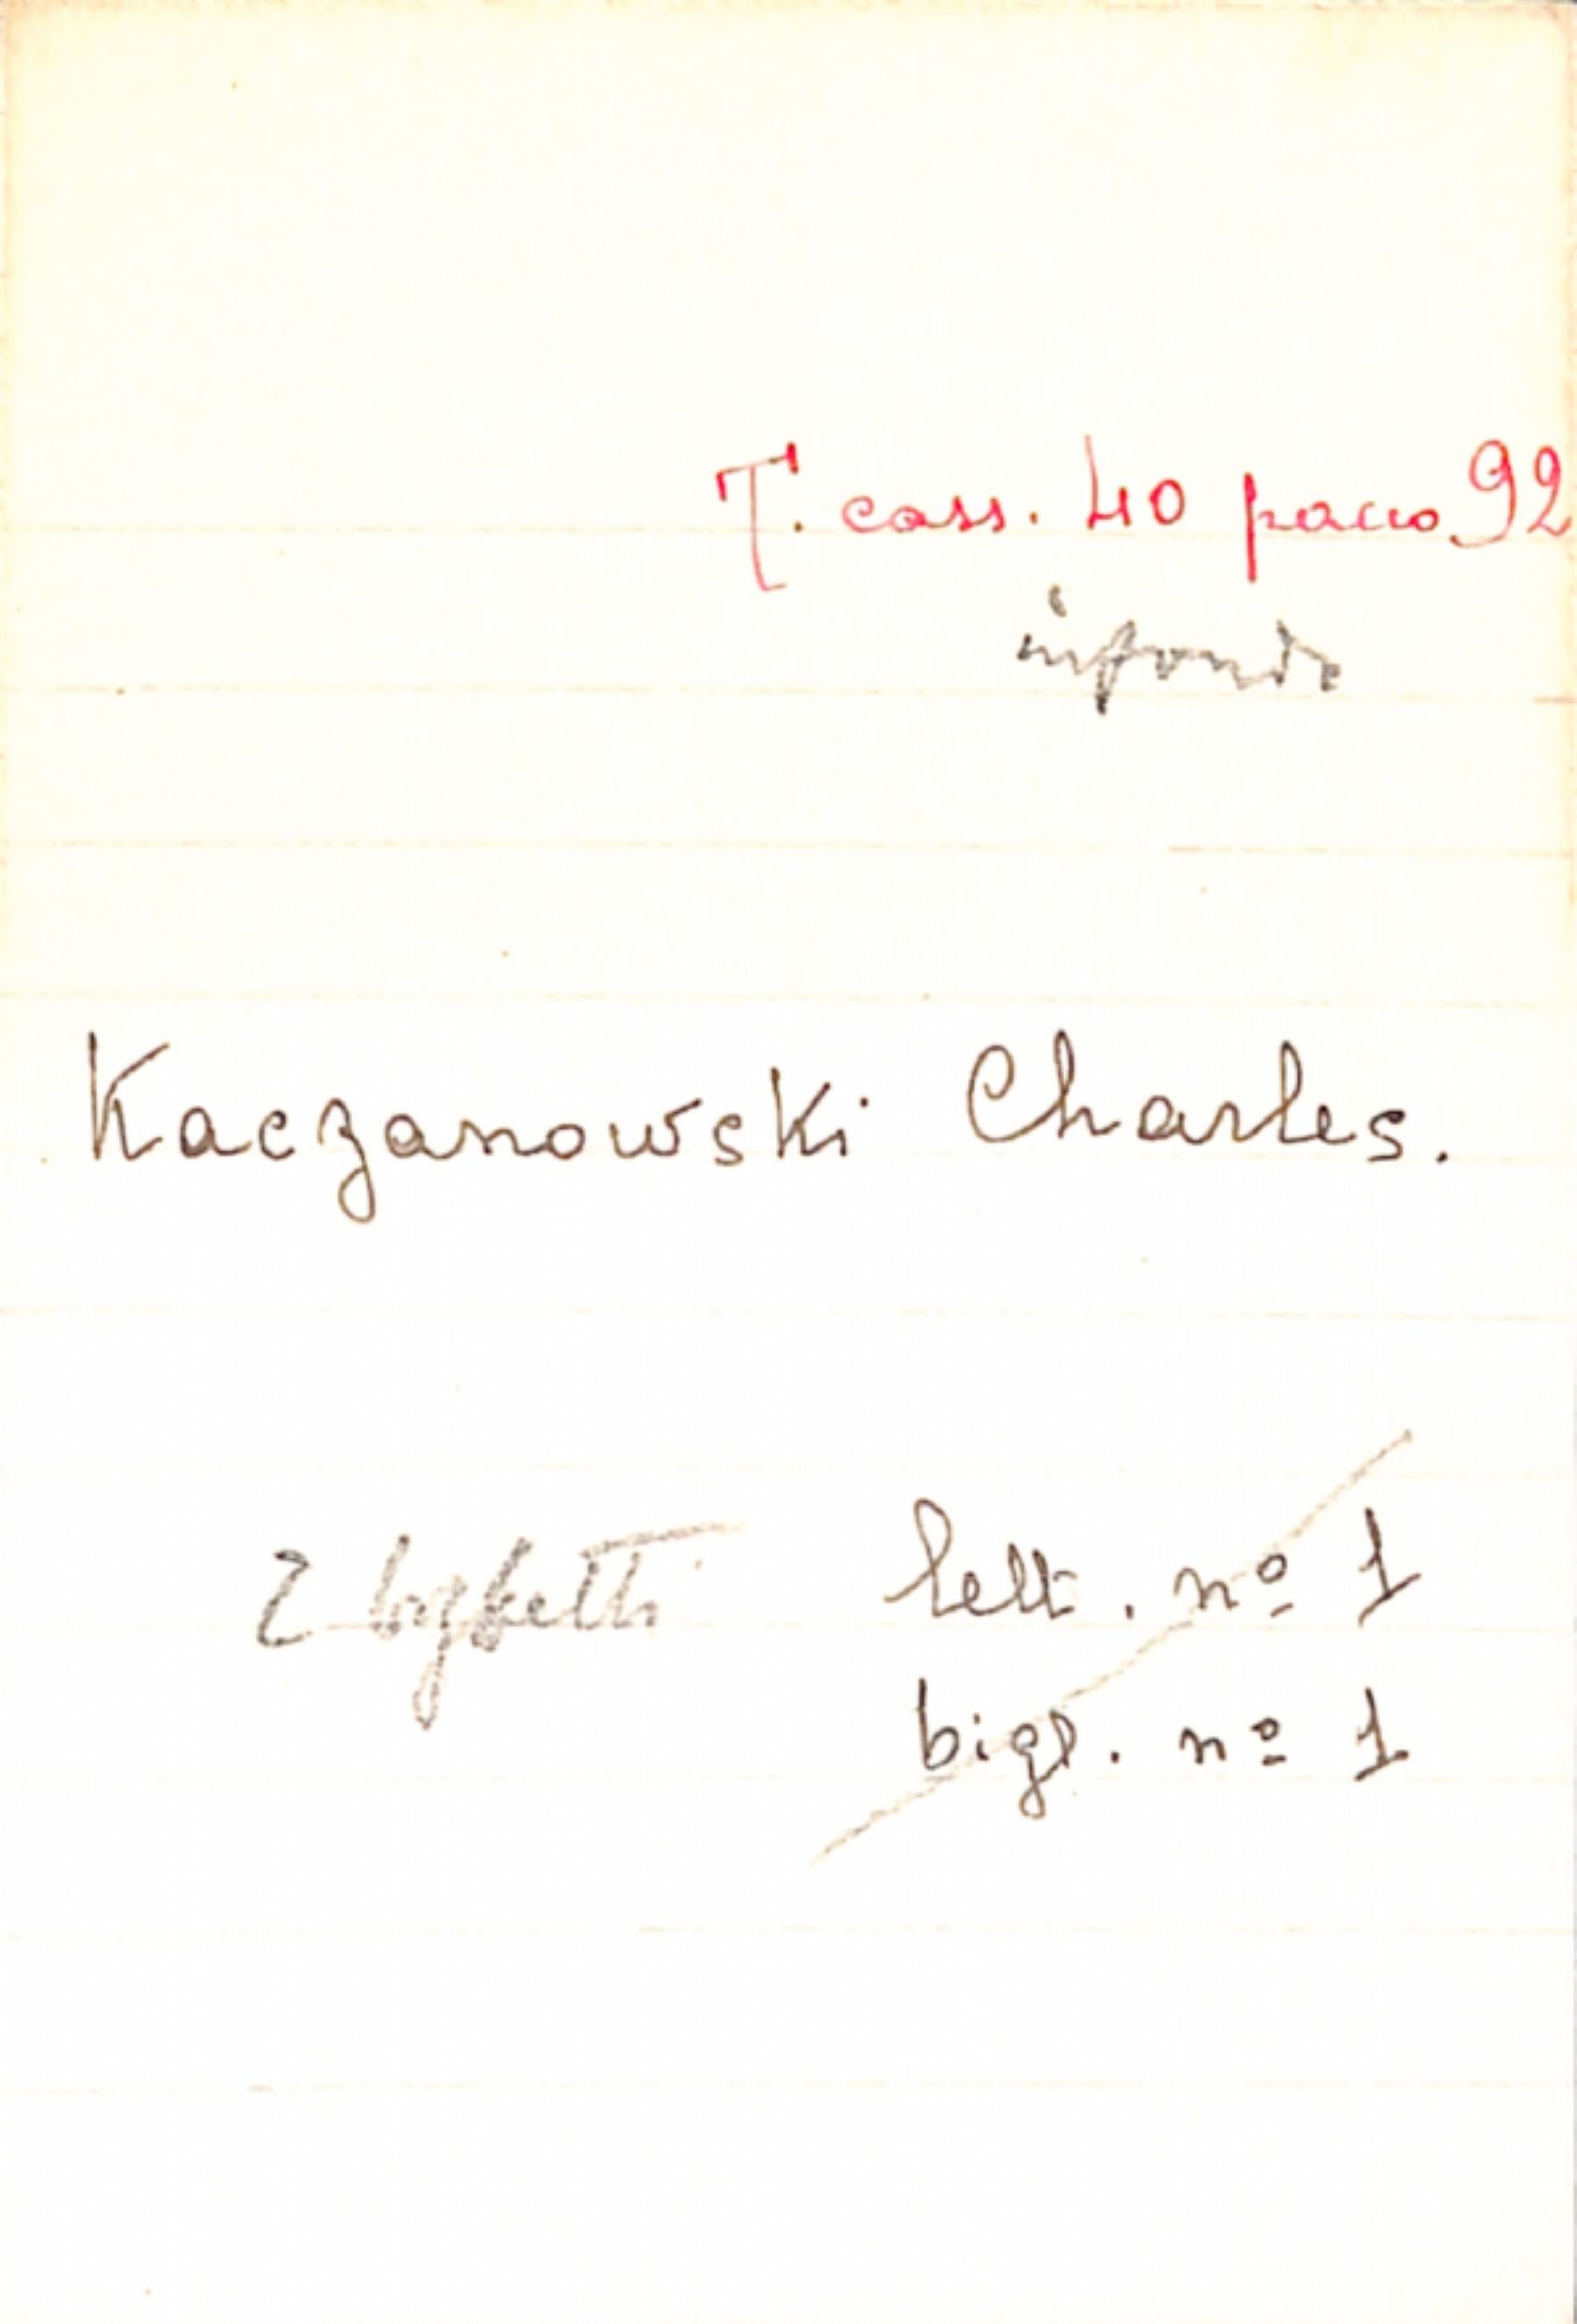 T. cass. 40 pacco 92
in fondo
Kaczanowski Charles.
2 biglietti lett. nº 1
bigl. nº 1